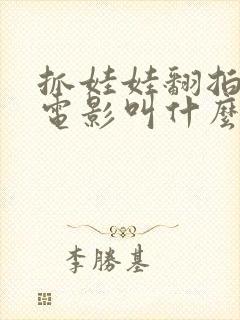 抓娃娃翻拍
電影叫什麼
李勝基